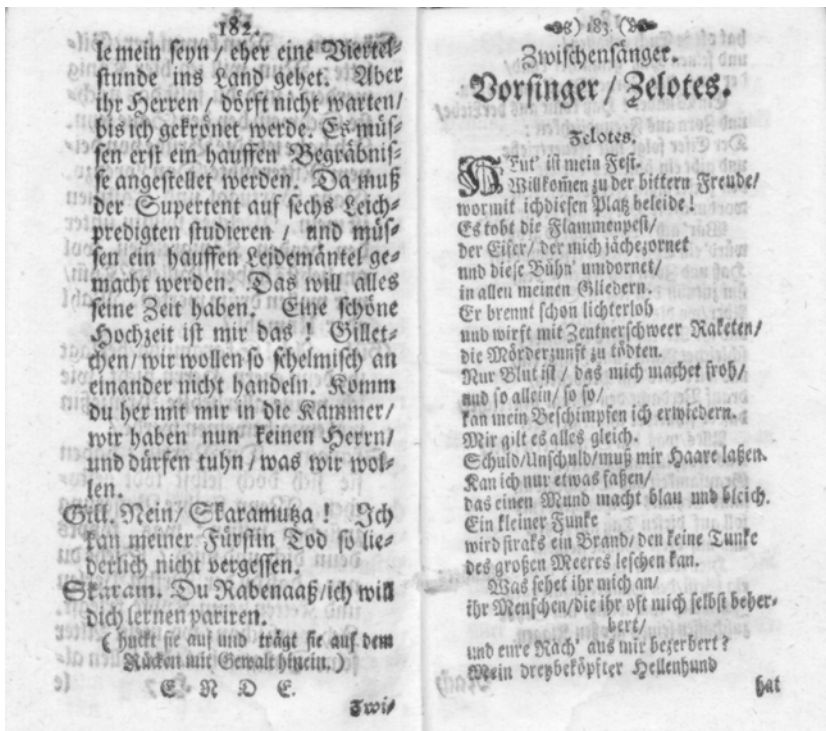 182.
le mein seyn / eher eine Viertel-
stunde ins Land gehet. Aber
ihr Herren / dörft nicht warten/
bis ich gekrönet werde. Es müs-
sen erst ein hauffen Begräbnis-
se angestellet werden. Da muß
der Supertent auf sechs Leich-
predigten studieren / und müs-
sen ein hauffen Leidemäntel ge-
macht werden. Das will alles
seine Zeit haben. Eine schöne
Hochzeit ist mir das ! Gillet-
chen/ wir wollen so schelmisch an
einander nicht handeln. Komm
du her mit mir in die Kammer/
wir haben nun keinen Herrn/
und dürfen tuhn / was wir wol-
len.
Gill. Nein/ Skaramutza ! Ich
kan meiner Fürstin Tod so lie-
derlich nicht vergessen.
Skaram. Du Rabenaaß/ich will
dich lernen pariren.
( huckt sie auf und trägt sie auf dem
Rücken mit Gewalt hinein. )
E. N D E.
Zwi-
) 183. (
Zwischensänger.
Vorsinger / Zelotes.
Zelotes.
HEut' ist mein Fest.
Willkom̄en zu der bittern Freude/
wormit ich diesen Platz beleide !
Es tobt die Flammenpest/
der Eifer/ der mich jächezornet
und diese Bühn' umdornet/
in allen meinen Gliedern.
Er brennt schon lichterloh
und wirft mit Zentnerschweer Raketen/
die Mörderzunft zu tödten.
Nur Blut ist / das mich machet froh/
und so allein/ so so/
kan mein Beschimpfen ich erwiedern.
Mir gilt es alles gleich.
Schuld/Unschuld/muß mir Haare laßen.
Kan ich nur etwas faßen/
das einen Mund macht blau und bleich.
Ein kleiner Funke
wird straks ein Brand/ den keine Tunke
des großen Meeres leschen kan.
Was sehet ihr mich an/
ihr Menschen/die ihr oft mich selbst beher-
bert/
und eure Rach' aus mir bezerbert ?
Mein dreybeköpfter Hellenhund
hat